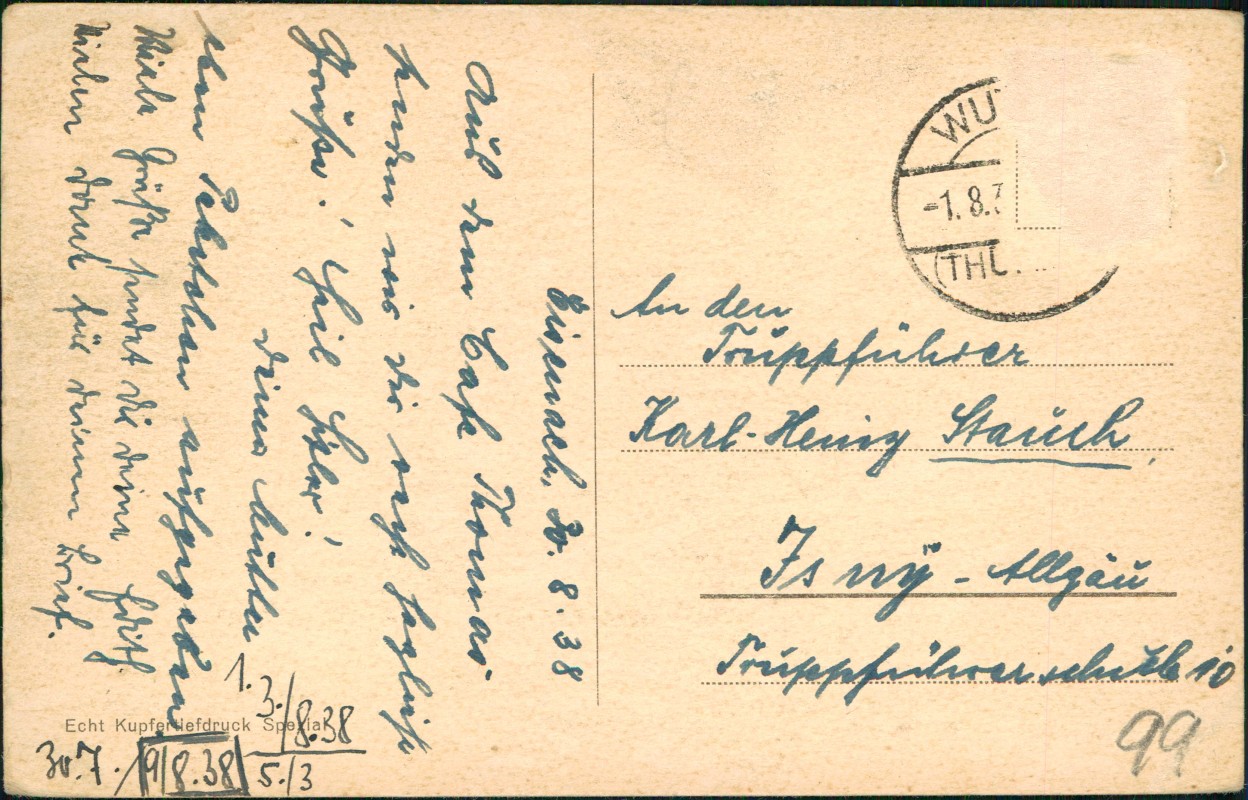 Eisenach, 30. 8. 38
Aus dem Cafe Thomas
senden wir dir recht herzliche
Grüße! Heil Hitler!
deine Mutter
eben Päckchen aufgegeben
Viele Grüße sendet dir deine Edith
Vielen Dank für deinen Brief.
WUT
-1.8.3
(THÜ
An den
Truppführer
Karl-Heinz Stauch,
Isny - Allgäu
Truppführerschule 10
Echt Kupfertiefdruck Spezial
1.
3./8.38
30.7./9/8.38
5./3
99